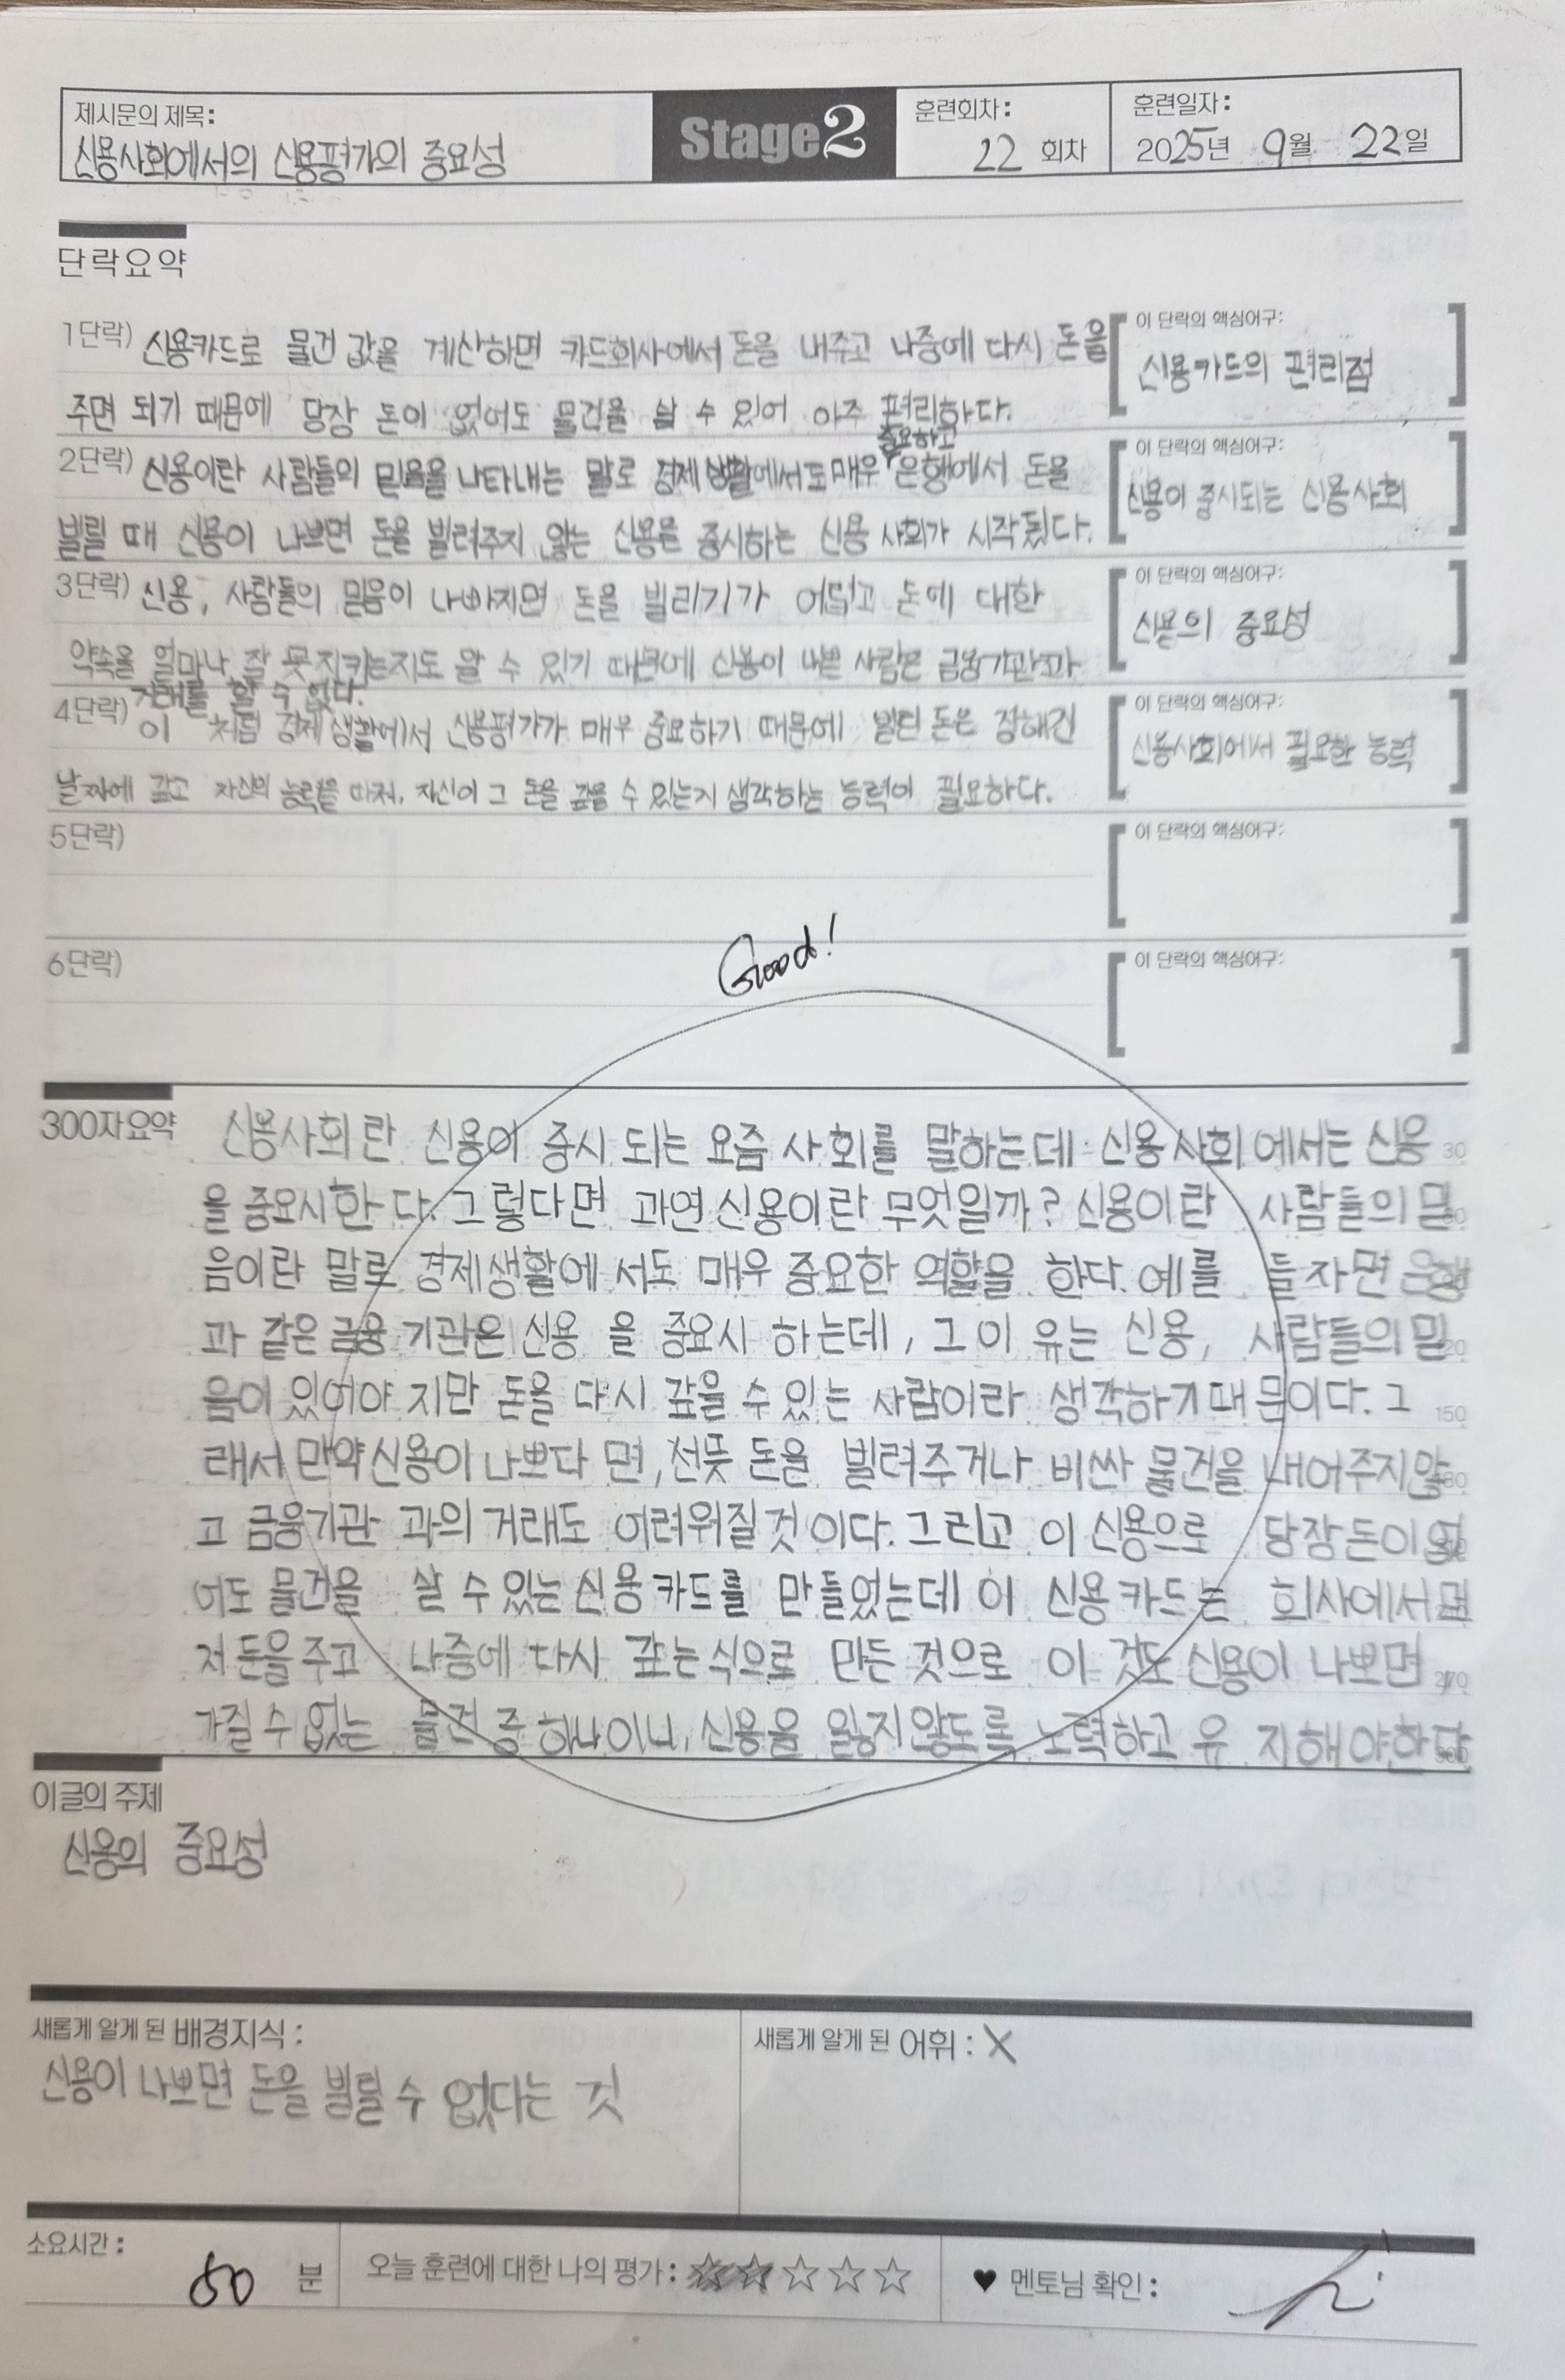 제시문의 제목:
신용사회에서의 신용평가의 중요성
Stage2
훈련회차:
22 회차
훈련일자:
2025년 9월 22일
단락요약
1단락) 신용카드로 물건 값을 계산하면 카드회사에서 돈을 내주고 나중에 다시 돈을
주면 되기 때문에 당장 돈이 없어도 물건을 살 수 있어 아주 편리하다.
이 단락의 핵심어구:
신용카드의 편리점
중요하고
2단락) 신용이란 사람들의 믿음을 나타내는 말로 경제 생활에서도 매우 은행에서 돈을
빌릴 때 신용이 나쁘면 돈을 빌려주지 않는 신용을 중시하는 신용 사회가 시작됬다.
이 단락의 핵심어구:
신용이 중시되는 신용사회
3단락) 신용, 사람들의 믿음이 나빠지면 돈을 빌리기가 어렵고 돈에 대한
약속을 얼마나 잘 못 지키는지도 알 수 있기 때문에 신용이 나쁜 사람은 금융기관과
거래를 할 수 없다.
이 단락의 핵심어구:
신용의 중요성
4단락) 이 처럼 경제 생활에서 신용평가가 매우 중요하기 때문에 빌린 돈은 정해진
날짜에 갚고 자신의 능력을 따져, 자신이 그 돈을 갚을 수 있는지 생각하는 능력이 필요하다.
이 단락의 핵심어구:
신용사회에서 필요한 능력
5단락)
이 단락의 핵심어구:
6단락)
이 단락의 핵심어구:
Good!
300자요약
신용사회란 신용이 중시 되는 요즘 사회를 말하는데 신용사회에서는 신용 30
을 중요시한다. 그렇다면 과연 신용이란 무엇일까? 신용이란 사람들의 믿
음이란 말로 경제생활에서도 매우 중요한 역할을 한다. 예를 들자면 은행
과 같은 금융 기관은 신용을 중요시 하는데, 그 이유는 신용, 사람들의 믿
음이 있어야지만 돈을 다시 갚을 수 있는 사람이라 생각하기 때문이다. 그 150
래서 만약 신용이 나쁘다면, 선뜻 돈을 빌려주거나 비싼 물건을 내어주지 않
고 금융기관 과의 거래도 어려워질 것이다. 그리고 이 신용으로 당장 돈이 없
어도 물건을 살 수 있는 신용 카드를 만들었는데 이 신용카드는 회사에서 먼
저 돈을 주고 나중에 다시 갚는 식으로 만든 것으로 이것도 신용이 나쁘면 270
가질 수 없는 물건 중 하나이니, 신용을 잃지 않도록 노력하고 유지해야한다
이글의 주제
신용의 중요성
새롭게 알게 된 배경지식:
신용이 나쁘면 돈을 빌릴 수 없다는 것
새롭게 알게 된 어휘: X
소요시간:
50 분
오늘 훈련에 대한 나의 평가: ☆☆☆☆☆
♥ 멘토님 확인: